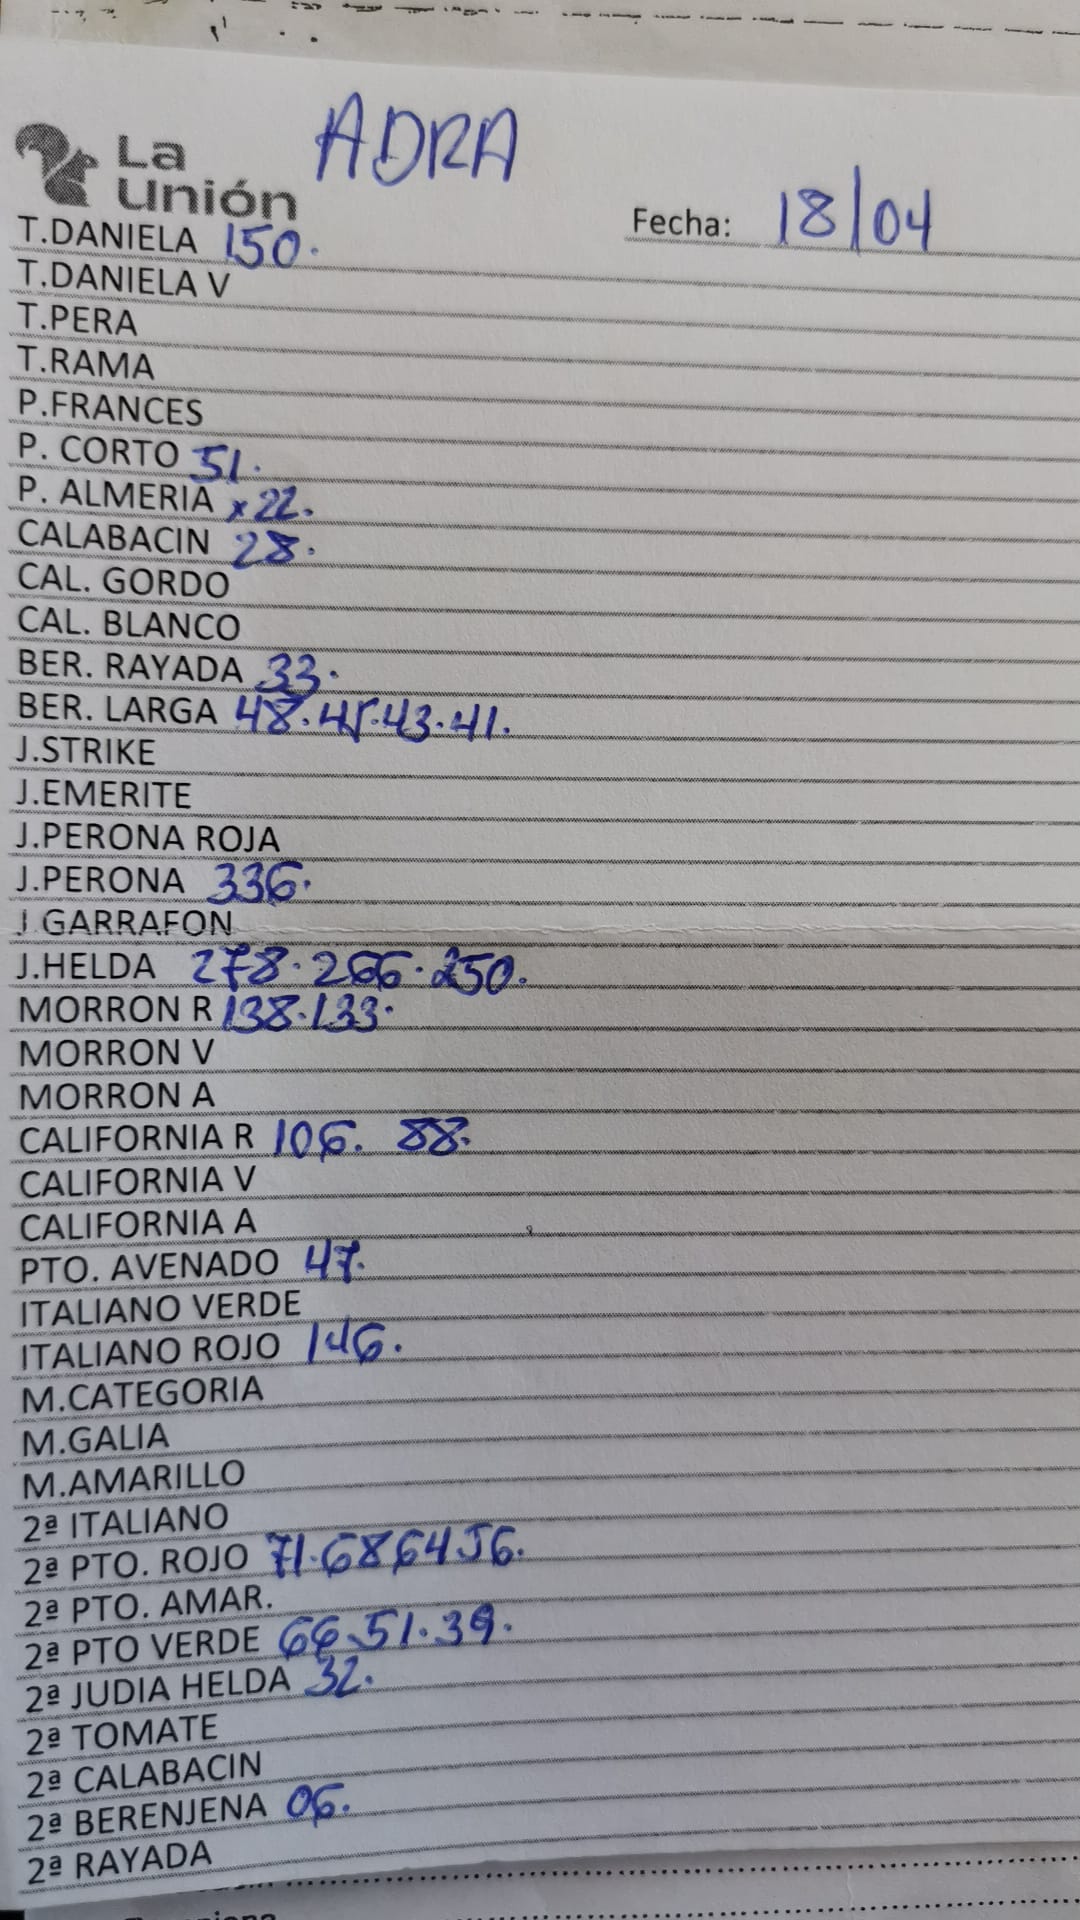 La
Unión
ADRA
Fecha: 18/04
T.DANIELA 150.
T.DANIELA V
T.PERA
T.RAMA
P.FRANCES
P. CORTO 51.
P. ALMERIA x22.
CALABACIN 28.
CAL. GORDO
CAL. BLANCO
BER. RAYADA 33.
BER. LARGA 48.45.43.41.
J.STRIKE
J.EMERITE
J.PERONA ROJA
J.PERONA 336.
J GARRAFON
J.HELDA 278.266.250.
MORRON R 138.133.
MORRON V
MORRON A
CALIFORNIA R 106. 88.
CALIFORNIA V
CALIFORNIA A
PTO. AVENADO 47.
ITALIANO VERDE
ITALIANO ROJO 146.
M.CATEGORIA
M.GALIA
M.AMARILLO
2ª ITALIANO
2ª PTO. ROJO 71.68 64 56.
2ª PTO. AMAR.
2ª PTO VERDE 66.51.39.
2ª JUDIA HELDA 32.
2ª TOMATE
2ª CALABACIN
2ª BERENJENA 06.
2ª RAYADA